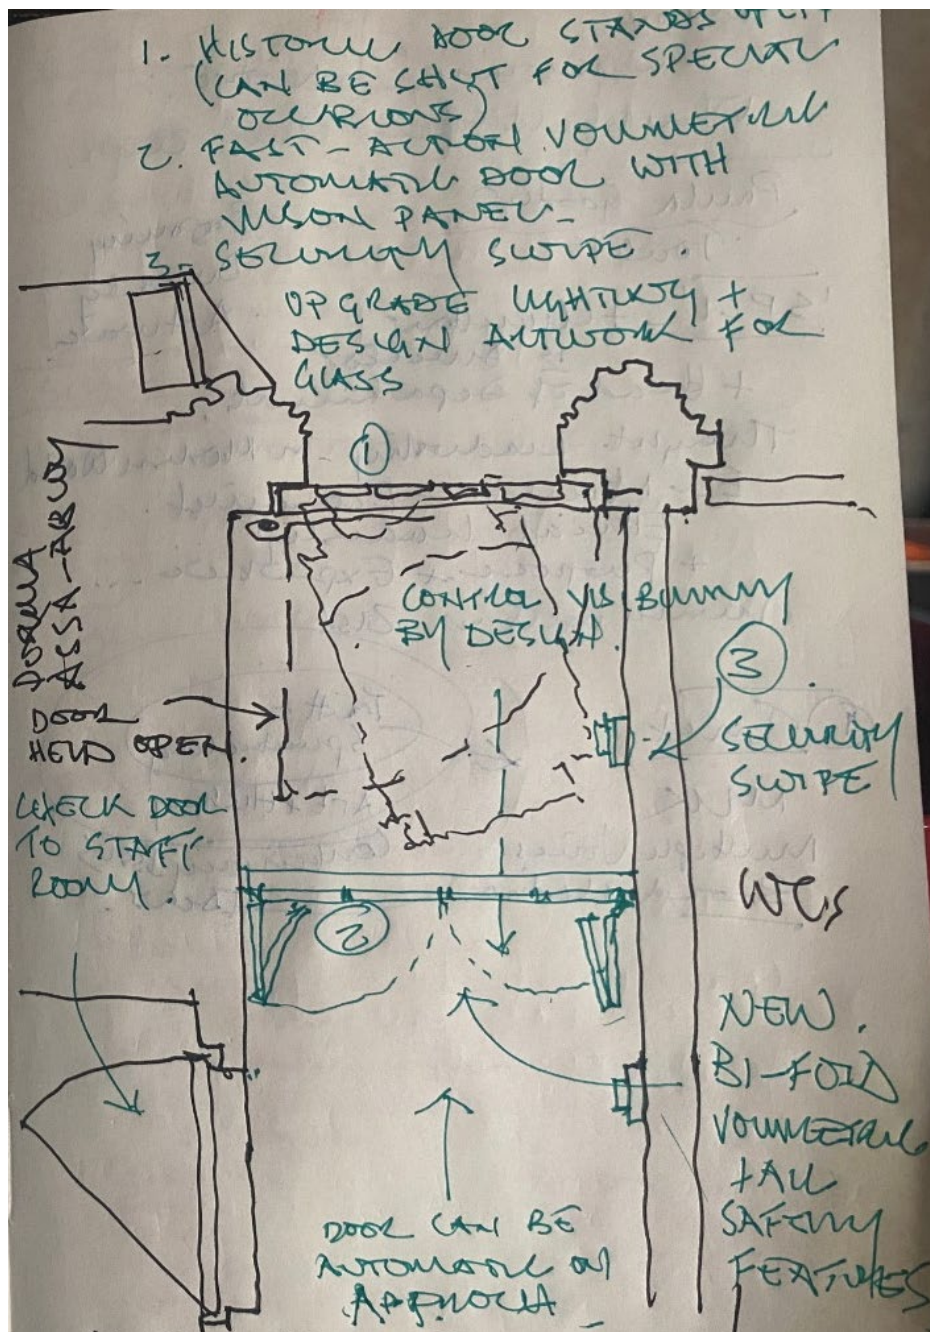 1. HISTORIC DOOR STANDS OPEN
(CAN BE SHUT FOR SPECIAL
OCCASIONS)
2. FAST-ACTION VOLUMETRIC
AUTOMATIC DOOR WITH
VISION PANEL-
3- SECURITY SWIPE.
UPGRADE LIGHTING +
DESIGN ARTWORK FOR
GLASS
1
DORMA
ASSA-ABLOY
CONTROL VISIBILITY
BY DESIGN.
3
DOOR
HELD OPEN.
SECURITY
SWIPE
CHECK DOOR
TO STAFF
ROOM.
WCs
2
NEW.
BI-FOLD
VOLUMETRIC
+ ALL
SAFETY
FEATURES
DOOR CAN BE
AUTOMATIC ON
APPROACH